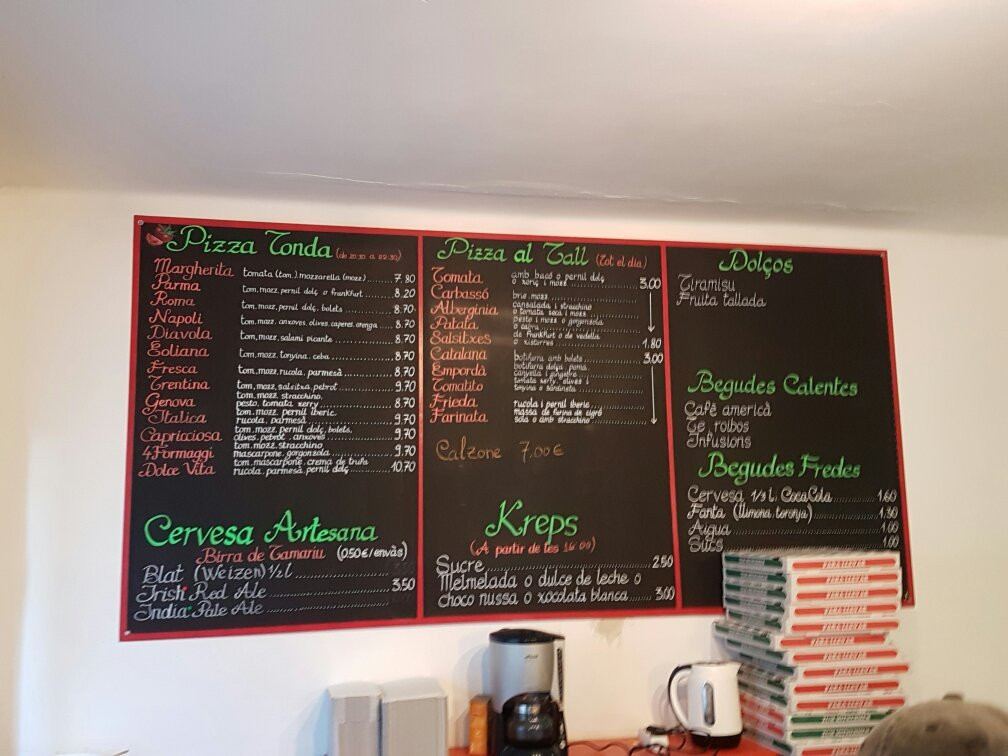 Pizza Tonda (de 20:30 a 22:30)
Margherita tomata (tom.), mozzarella (mozz.) 7.80
Parma tom, mozz, pernil dolç o frankfurt 8.20
Roma tom, mozz, pernil dolç, bolets 8.70
Napoli tom, mozz, anxoves, olives, caperes, orenga 8.70
Diavola tom, mozz, salami picante 8.70
Eoliana tom, mozz, tonyina, ceba 8.70
Fresca tom, mozz, rucola, parmesà 8.70
Trentina tom, mozz, salsitxa, pebrot 9.70
Genova tom, mozz, stracchino,
pesto, tomata xerry 8.70
Italica tom, mozz, pernil iberic,
rucola, parmesà 9.70
Capricciosa tom, mozz, pernil dolç, bolets,
olives, pebrot, anxoves 9.70
4Formaggi tom, mozz, stracchino
mascarpone, gorgonzola 9.70
Dolce Vita tom, mascarpone, crema de trufa
rucola, parmesà, pernil dolç 10.70
Cervesa Artesana
Birra de Tamariu (0,50€/envàs)
Blat (Weizen) 1/2 l
Irish Red Ale 3.50
India Pale Ale
Pizza al Tall (Tot el dia)
Tomata amb bacó o pernil dolç
o xoriç i mozz 3.00
Carbassó brie, mozz
Albergínia cansalada i stracchino
o tomata seca i mozz
Patata pesto i mozz o gorgonzola
o cabra
Salsitxes de frankfurt o de vedella
o xistorres 1.80
Catalana botifarra amb bolets 3.00
Empordà botifarra dolça, poma,
canyella i gingebre
Tomatito tomata xerry, olives i
tonyina o sardineta
Frieda rucola i pernil iberic
Farinata massa de farina de cigró
sola o amb stracchino
Calzone 7.00€
Kreps
(A partir de les 16:00)
Sucre 2.50
Melmelada o dulce de leche o
choco nussa o xocolata blanca 3.00
Dolços
Tiramisu
Fruita tallada
Begudes Calentes
Cafè americà
Te, roibos
Infusions
Begudes Fredes
Cervesa 1/3 l, CocaCola 1.60
Fanta (llimona, taronja) 1.30
Aigua 1.00
Sucs 1.00